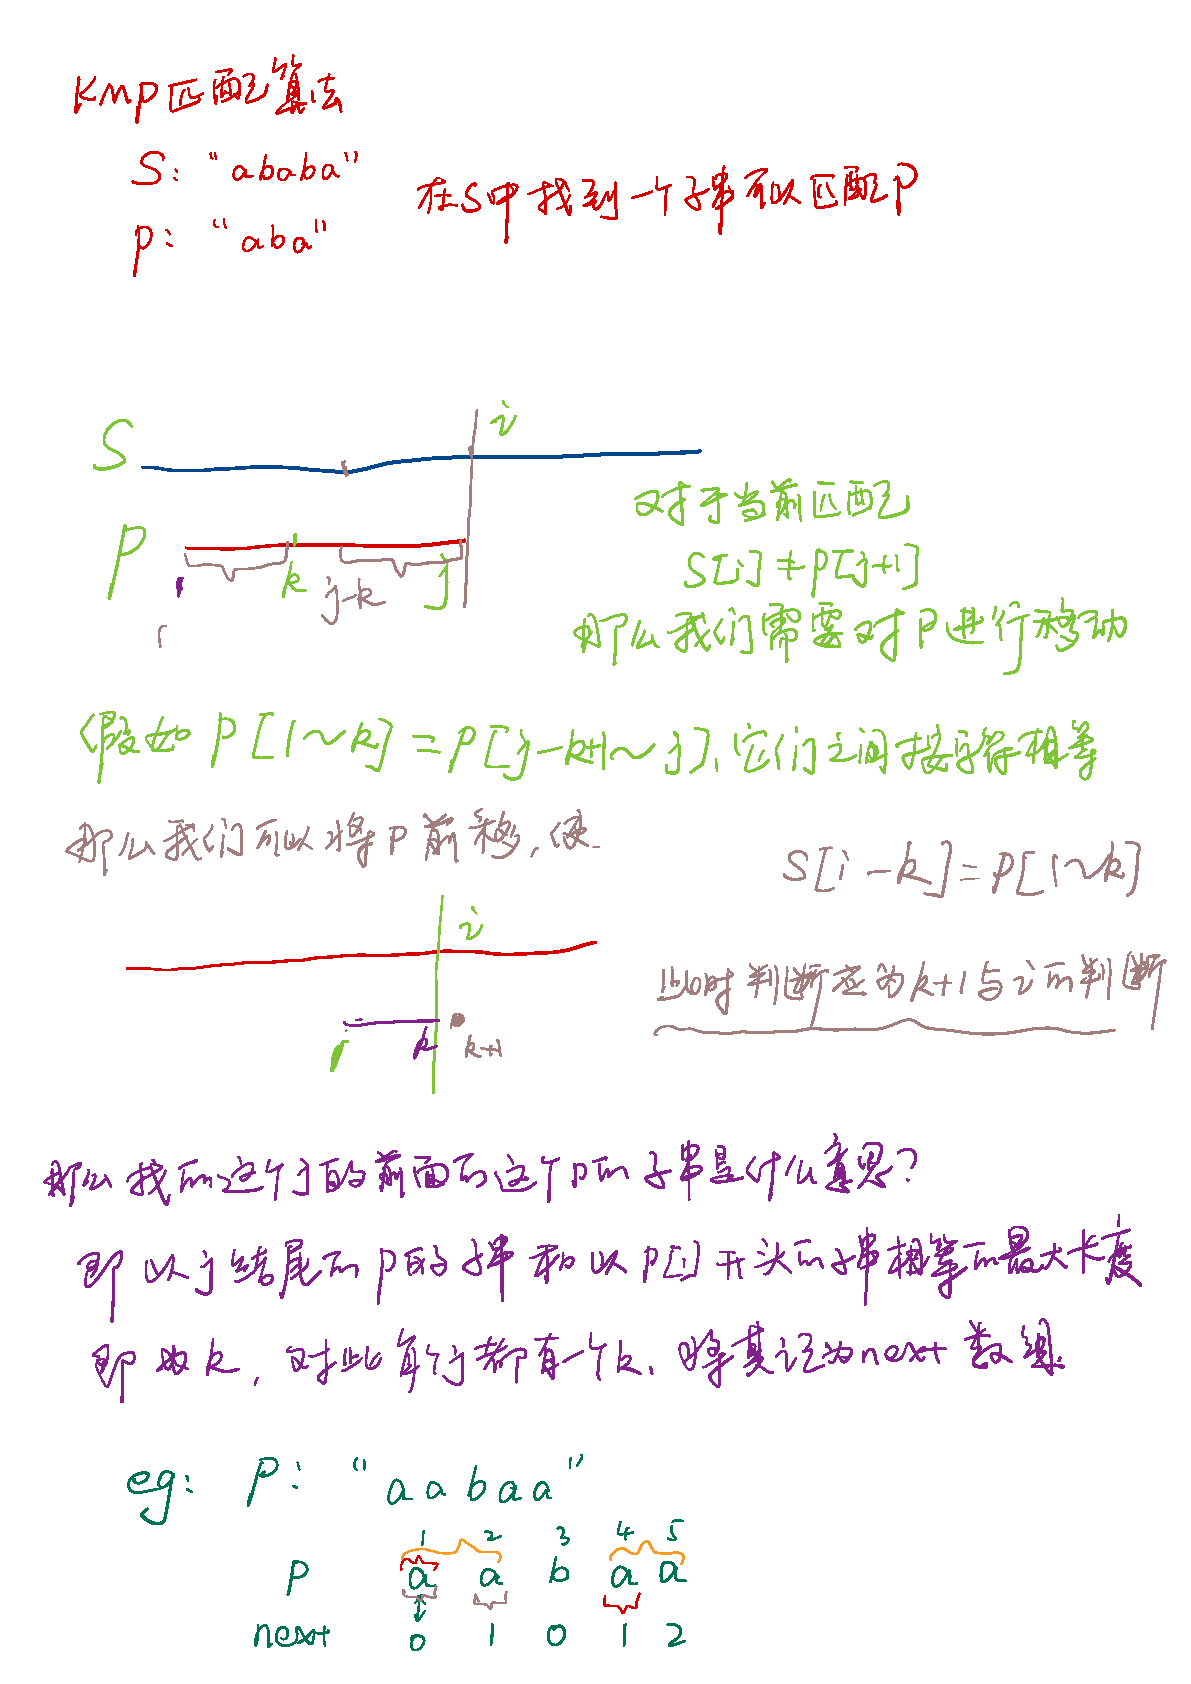 KMP匹配算法
S: "ababa"
P: "aba"
在S中找到一个子串可以匹配P
S
i
P
1
k
j-k
j
对于当前匹配
S[i]≠P[j+1]
那么我们需要对P进行移动
假如P[1~k]=P[j-k+1~j],它们之间按字符相等
那么我们可以将P前移,使
S[i-k]=P[1~k]
i
1
k
k+1
此时判断应为k+1与i的判断
那么找的这个j的前面的这个P的子串是什么意思?
即以j结尾的P的子串和以P[1]开头的子串相等的最大长度
即为k,对此每个j都有一个k,将其记为next数组.
eg: P: "aabaa"
1 2 3 4 5
P a a b a a
next 0 1 0 1 2